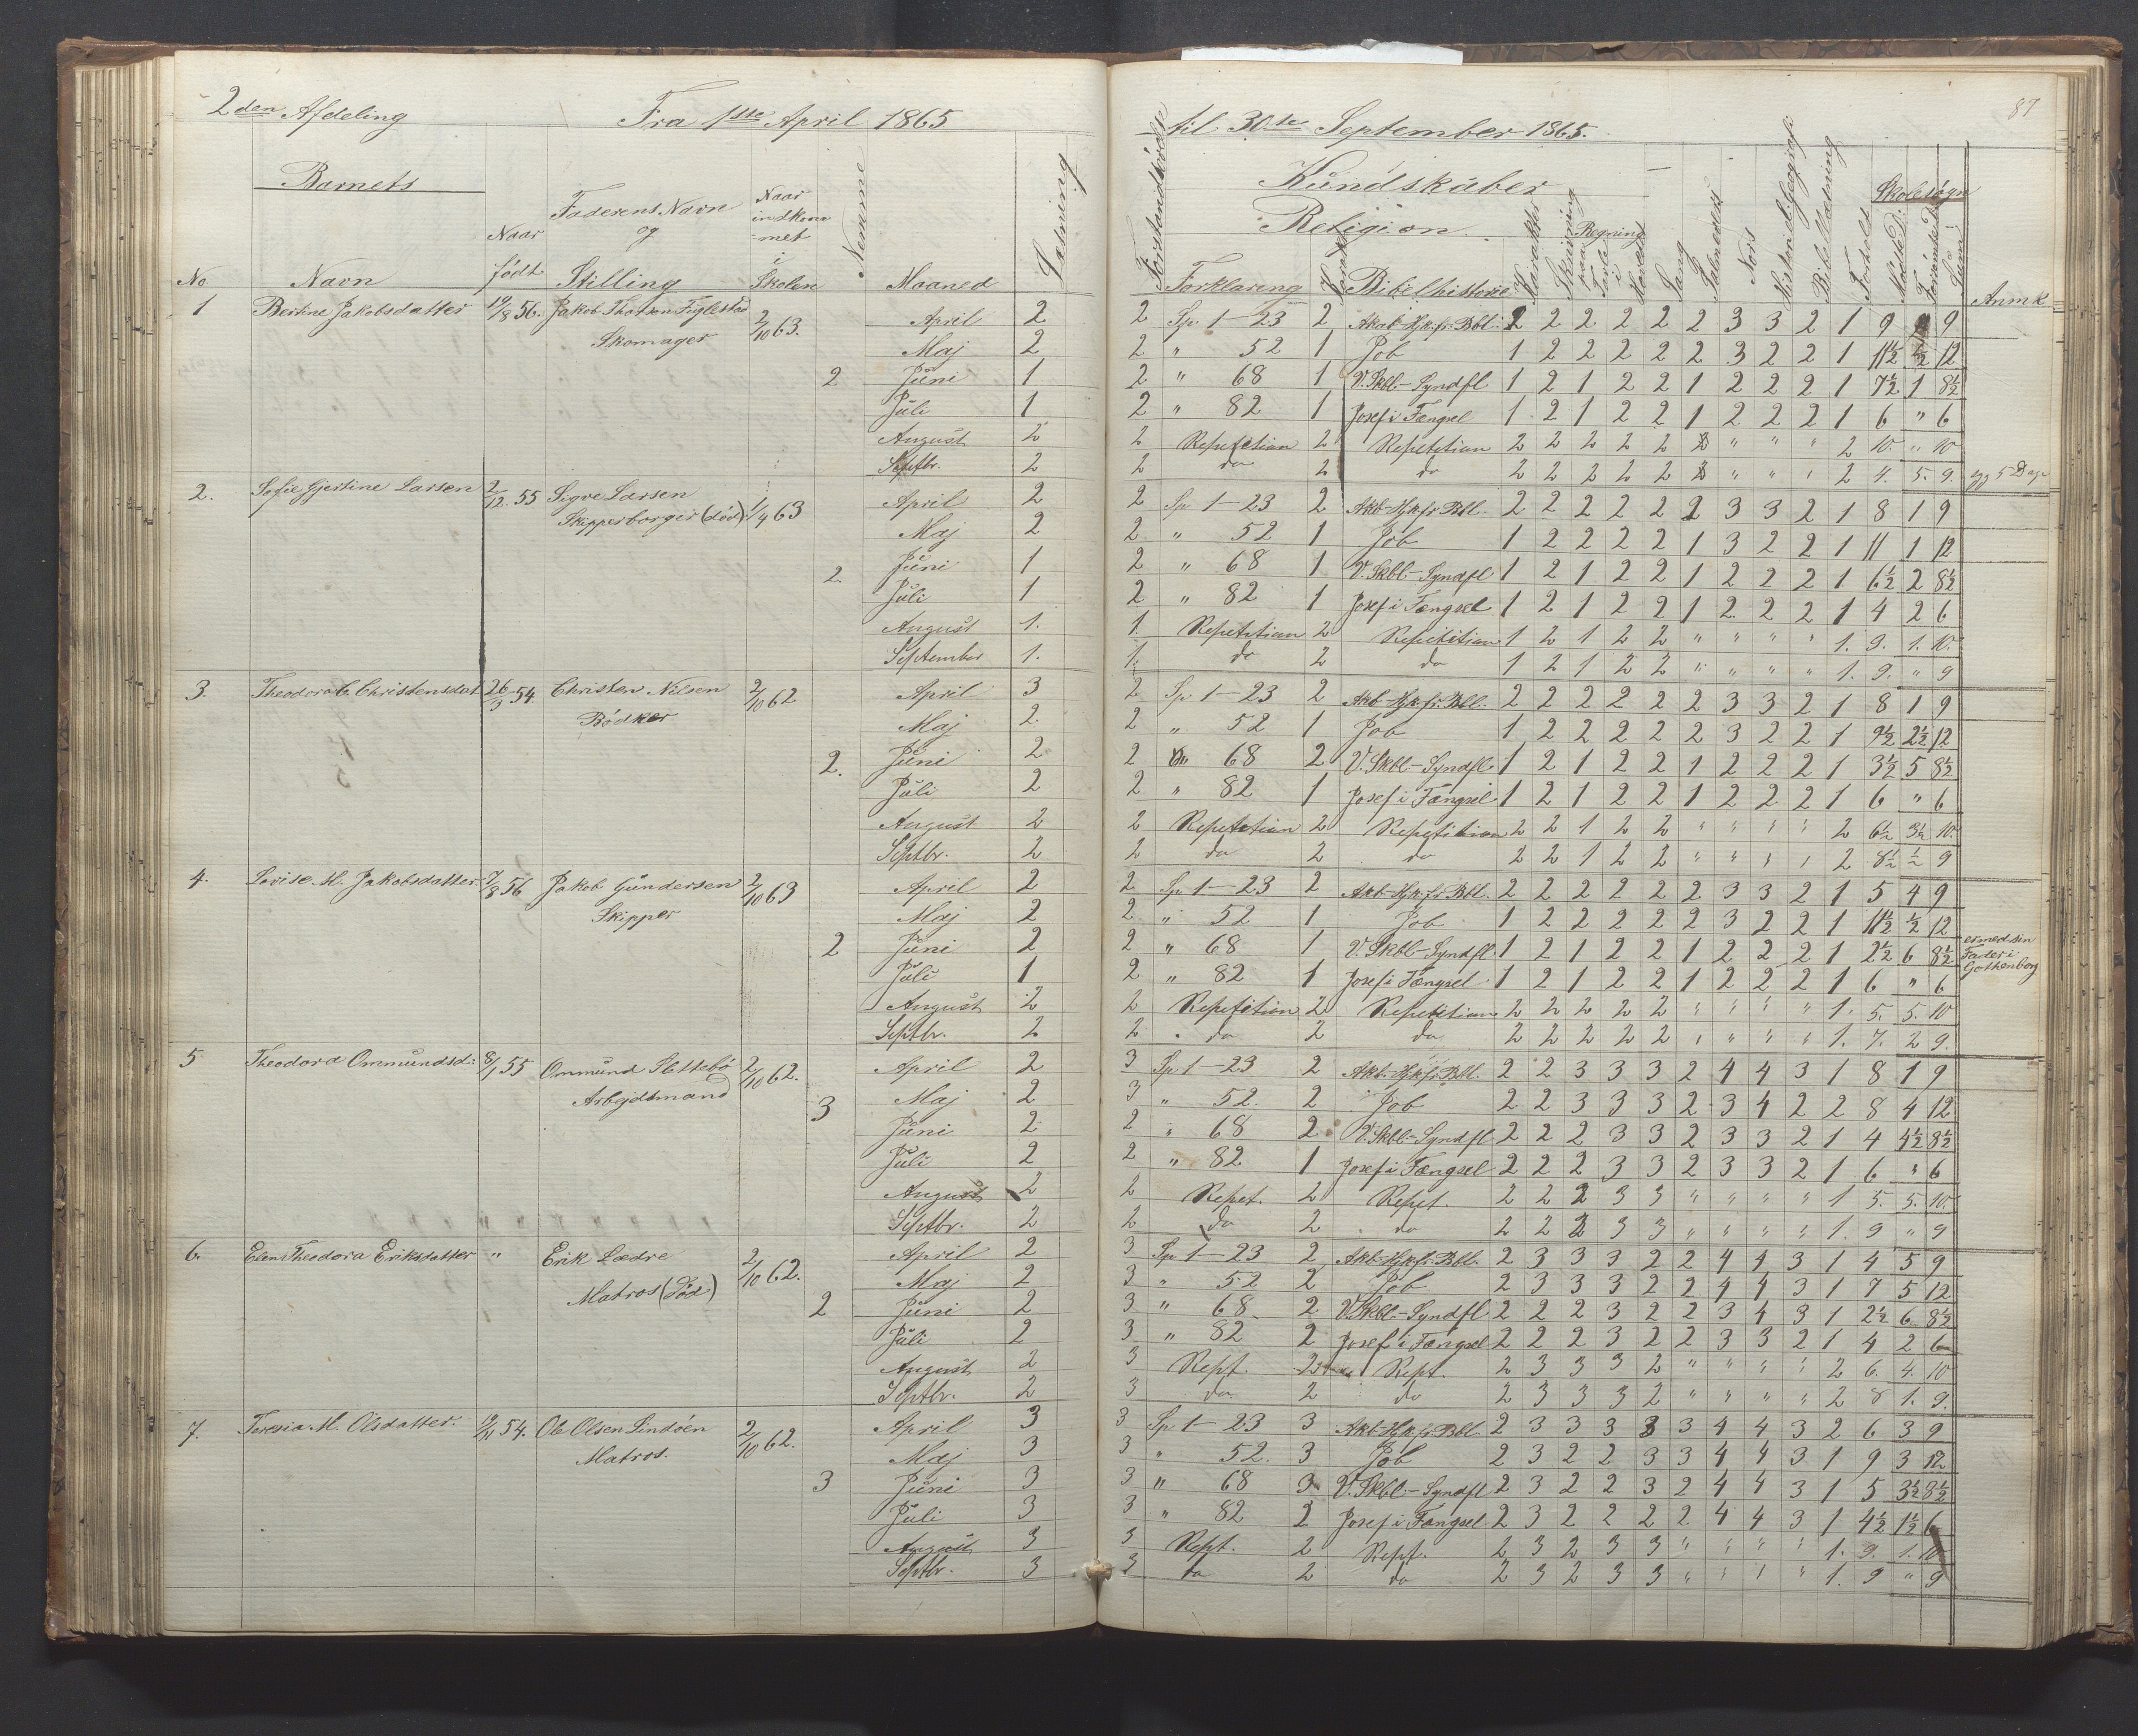 2den Afdeling Fra 1ste April 1865
Barnets
No. Navn Naar født Faderens Navn og Stilling Naar indkommet i Skolen Nemme Maaned Læsning
1 Bertine Jakobsdatter 19/8 56. Jakob Thorsen Figlestad 2/10 63. April 2
Skomager Maj 2
2 Juni 1
Juli 1
August 2
Septbr. 2
2. Sofie Gjertine Larsen 2/12 55 Sigve Larsen 1/4 63 April 2
Skipperborger (død) Maj 2
2. Juni 1
Juli 1
August 1.
September 1.
3. Theodora C. Christensdat 26/3 54. Christen Nilsen 2/10 62 April 3
Bødker Maj 2.
2. Juni 2
Juli 2
August 2
Septbr. 2
4. Lovise M. Jakobsdatter 7/8 56 Jakob Gundersen 2/10 63 April 2
Skipper Maj 2
2 Juni 2
Juli 1
August 2
Septbr. 2
5 Theodora Ommundsd: 8/1 55 Ommund Slettebø 2/10 62. April 2
Arbejdsmand 3 Maj 2
Juni 2
Juli 2
August 2
Septbr. 2
6. Elen Theodora Eriksdatter " Erik Lædre 2/10 62. April 2
Matros (død) Maj 2
2 Juni 2
Juli 2
August 2
Septbr. 2
7. Teresia M. Olsdatter. 54. Ole Olsen Lindöen 2/10 62. April 3
Matros. Maj 3
3 Juni 3
Juli 3
August 3
Septbr. 3
87
til 30te September 1865.
Kundskaber
Religion.
Forstandsøvelse Forklareng Karakter Bibelhistorie Karakter Skrivning Regning paa Tavle i Hovedet Sang Salmevers Nors Historie l. Geografi Bibellæsning Forhold Skoledøgn Mødte D: Forsømte D: Sum Anmk
2 Sp. 1-23 2 Akab-Hjk.fr.Bbl. 2 2 2 2 2 2 3 3 2 1 9 9
2 " 52 1 Job 1 2 2 2 2 2 3 2 2 1 11½ ½ 12
2 " 68 1 V.Skbl-Syndfl 1 2 1 2 2 1 2 2 2 1 7½ 1 8½
2 " 82 1 Josef i Fængsel 1 2 1 2 2 1 2 2 2 1 6 " 6
2 Repetetian 2 Repetetian 2 2 2 2 2 " " " 2 10. " 10
2 do 2 do 2 2 2 2 2 " " " 2 4. 5. 9. syg 5 Dage
2 Sp 1-23 2 Akb-Hjk.fr.Bbl. 2 2 2 2 2 2 3 3 2 1 8 1 9
2 " 52 1 Job 1 2 2 2 2 1 3 2 2 1 11 1 12
2 " 68 1 V.Skbl-Syndfl. 1 2 1 2 2 1 2 2 2 1 6½ 2 8½
2 " 82 1 Josef i Fængsel 1 2 1 2 2 1 2 2 2 1 4 2 6
1. Repetetian 2 Repetetian 1 2 1 2 2 " " " " 1. 9. 1. 10.
1. do 2 do 1 2 1 2 2 " " " " 1. 9. " 9
2 Sp 1-23 2 Akb-Hjk.fr.Bbl. 2 2 2 2 2 2 3 3 2 1 8 1 9
2 " 52 1 Job 1 2 2 2 2 2 3 2 2 1 9½ 2½ 12
2 " 68 2 V.Skbl-Syndfl. 1 2 1 2 2 1 2 2 2 1 3½ 5 8½
2 " 82 1 Josef i Fængsel 1 2 1 2 2 1 2 2 2 1 6 " 6
2 Repetetian 2 Repetitian 2 2 1 2 2 " " " " 2 6½ 3½ 10.
2 do 2 do 2 2 1 2 2 " " " " 2 8½ ½ 9
2 Sp. 1-23 2 Akb-Hjk.fr.Bbl. 2 2 2 2 2 2 3 3 2 1 5 4 9
2 " 52 1 Job 1 2 2 2 2 2 3 2 2 1 11½ ½ 12
2 " 68 1 V.Skbl-Syndfl. 1 2 1 2 2 1 2 2 2 1 2½ 6 8½ er med sin
2 " 82 1 Josef i Fængsel 1 2 1 2 2 1 2 2 2 1 6 " 6 Fader i Gothenborg
2 Repetition 2 Repetitian 2 2 2 2 2 " " " " 1. 5. 5. 10
2 do 2 do 2 2 2 2 2 " " " " 1. 7. 2 9.
3 Sp. 1-23 2 Akb-Hjk.fr.Bbl. 2 2 3 3 3 2 4 4 3 1 8 1 9
3 " 52. 2 Job 2 2 3 3 3 2 3 4 2 2 8 4 12
2 " 68 2 V.Skbl-Syndfl 2 2 2 3 3 2 3 3 2 1 4 4½ 8½
2 " 82 1 Josef i Fængsel 2 2 2 3 3 2 3 3 2 1 6 " 6
2 Repet. 2 Repet. 2 2 2 3 3 " " " " 1 5. 5. 10.
2 do 2 do 2 2 2 3 3 " " " " 1. 9 " 9
3 Sp. 1-23 2 Akb-Hjk.fr.Bbl. 2 3 3 3 2 2 4 4 3 1 4 5 9
3 " 52 2 Job 2 3 3 3 2 2 4 4 3 1 7 5 12
3 " 68 2 V.Skbl-Syndfl 2 2 2 3 2 2 3 4 3 1 2½ 6 8½
3 " 82 2 Josef i Fængsel 2 2 2 3 2 2 3 3 2 1 4 2 6
3 Rept. 2 Rept. 2 3 3 3 2 " " " " 2 6. 4. 10
3 do. 2 do 2 3 3 3 2 " " " " 2 8 1. 9.
3 Sp 1-23 3 Akb-Hjk.fr.Bbl. 2 3 3 3 3 3 4 4 3 2 6 3 9
3 " 52. 3 Job 2 3 2 2 3 3 4 4 3 1 9 3 12
3 " 68 3 V.Skbl-Syndfl 2 3 2 2 3 2 4 4 3 1 5 3½ 8½
3 " 82 2 Josef i Fængsel 2 3 2 2 2 2 4 4 3 1 4½ 1½ 6
3 Rept. 2 Rept. 2 3 2 3 3 " " " " 1. 9. 1. 10
3 do 2 do 2 3 2 3 3 " " " " 1. 9 " 9